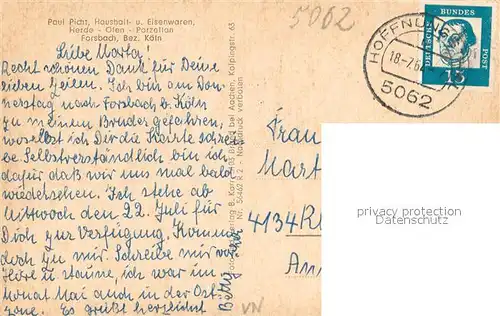 Paul Picht, Haushalt- u. Eisenwaren,
Herde - Öfen - Porzellan
Forsbach, Bez. Köln
5062
Liebe Marta!
Recht schönen Dank für Deine
lieben Zeilen. Ich bin am Don-
nerstag nach Forsbach b/ Köln
zu meinem Bruder gefahren,
woselbst ich Dir die Karte schrei-
be Selbstverständlich bin ich
dafür daß wir uns mal bald
wiedersehen. Ich stehe ab
Mittwoch den 22. Juli für
Dich zur Verfügung. Komme
doch zu mir. Schreibe mir vorher
Höre u staune, ich war im
Monat Mai auch in der Ost-
zone. Es grüßt herzlichst
Betty
bei Aachen, Kolpingstr. 63
Nr. 56462 R 2 - Nachdruck verboten
HOFFNUNGSTHAL
5062
DEUTSCHE BUNDESPOST
15
Frau
Mart
4134 R
An
VN
privacy protection
Datenschutz